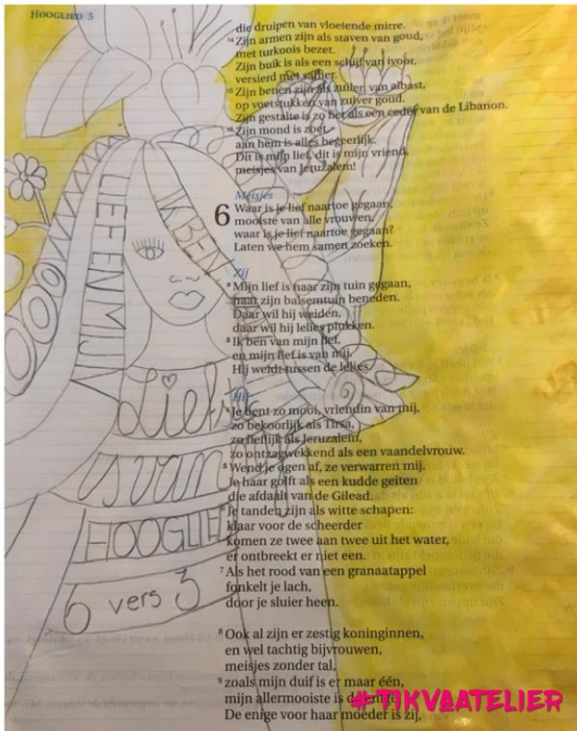 HOOGLIED 5
die druipen van vloeiende mirre.
14 Zijn armen zijn als staven van goud,
met turkoois bezet.
Zijn buik is als een schijf van ivoor,
versierd met saffier.
15 Zijn benen zijn als zuilen van albast,
op voetstukken van zuiver goud.
Zijn gestalte is zo fier als een ceder van de Libanon.
16 Zijn mond is zoet,
aan hem is alles begeerlijk.
Dit is mijn lief, dit is mijn vriend,
meisjes van Jeruzalem!
Meisjes
6 Waar is je lief naartoe gegaan,
mooiste van alle vrouwen,
waar is je lief naartoe gegaan?
Laten we hem samen zoeken.
Zij
2 Mijn lief is naar zijn tuin gegaan,
naar zijn balsemtuin beneden.
Daar wil hij weiden,
daar wil hij lelies plukken.
3 Ik ben van mijn lief,
en mijn lief is van mij.
Hij weidt tussen de lelies.
Hij
4 Je bent zo mooi, vriendin van mij,
zo bekoorlijk als Tirsa,
zo lieflijk als Jeruzalem,
zo ontzagwekkend als een vaandelvrouw.
5 Wend je ogen af, ze verwarren mij.
Je haar golft als een kudde geiten
die afdaalt van de Gilead.
6 Je tanden zijn als witte schapen:
klaar voor de scheerder
komen ze twee aan twee uit het water,
er ontbreekt er niet een.
7 Als het rood van een granaatappel
fonkelt je lach,
door je sluier heen.
8 Ook al zijn er zestig koninginnen,
en wel tachtig bijvrouwen,
meisjes zonder tal,
9 zoals mijn duif is er maar één,
mijn allermooiste is de enige.
De enige voor haar moeder is zij,
IK BEN
LIEF EN MIJN
Lief
is van
HOOGLIED
6 vers 3
#TIKVAATELIER